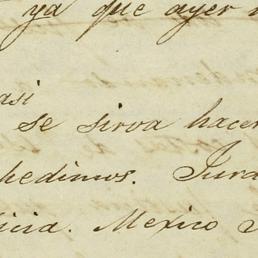 ya que ayer
asi
se sirva hacer
pedimos. Jura
icia. Mexico